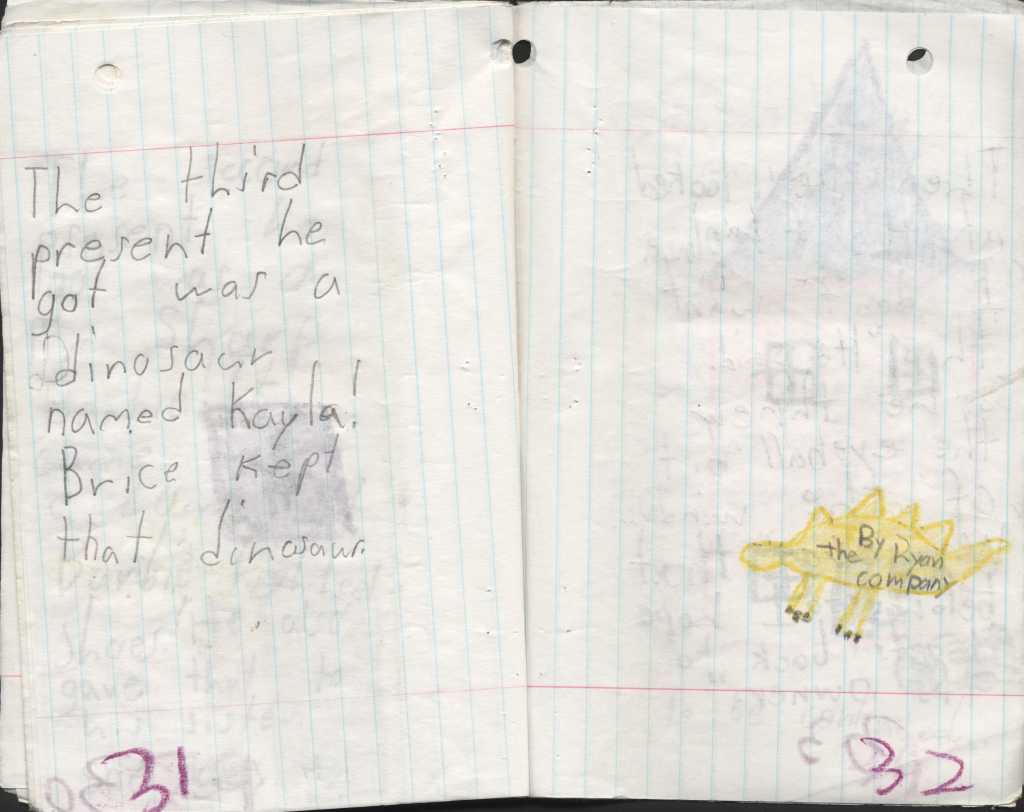 The third
present he
got was a
dinosaur
named Kayla!
Brice kept
that dinosaur.
31
By Ryan
the company
32